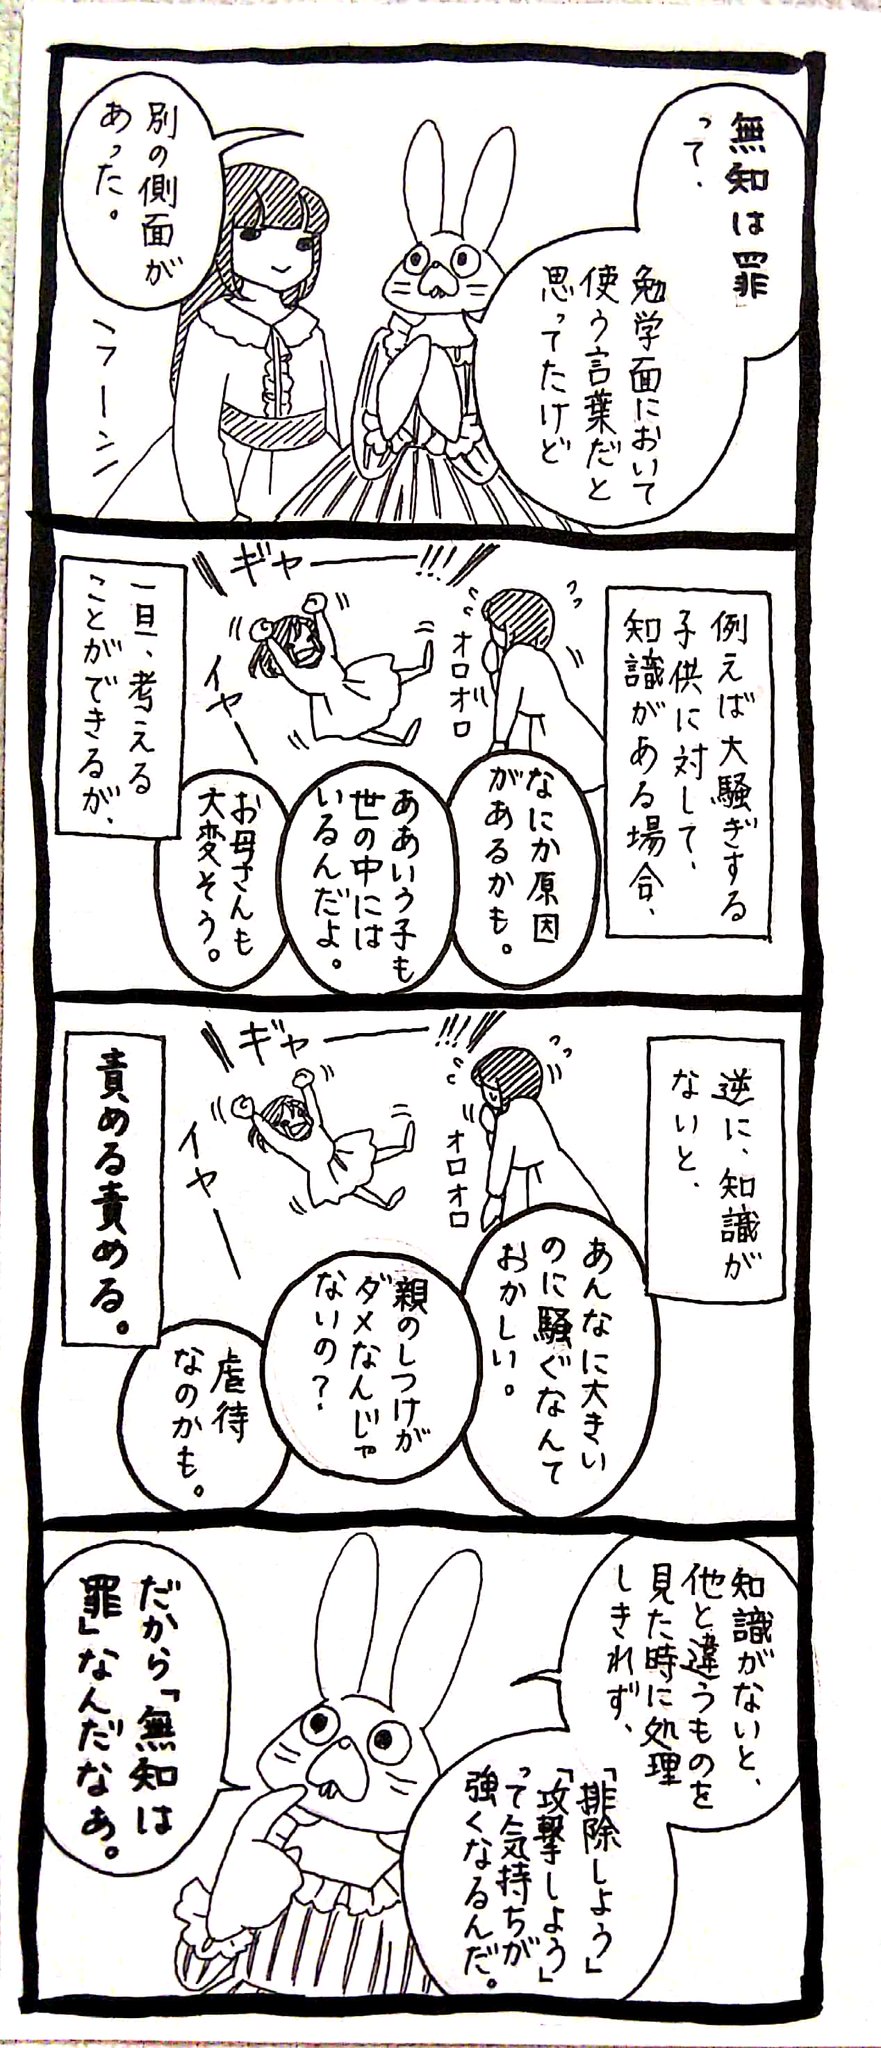 「無知は罪」
って、
勉学面において
使う言葉だと
思ってたけど
別の側面が
あった。
へフーン
例えば大騒ぎする
子供に対して、
知識がある場合、
ギャー!!!
オロオロ
イヤー
なにか原因
があるかも。
ああいう子も
世の中には
いるんだよ。
お母さんも
大変そう。
一旦、考える
ことができるが、
逆に、知識が
ないと、
ギャー!!!
オロオロ
イヤー
あんなに大きい
のに騒ぐなんて
おかしい。
親のしつけが
ダメなんじゃ
ないの?
虐待
なのかも。
責める責める。
知識がないと、
他と違うものを
見た時に処理
しきれず、
「排除しよう」
「攻撃しよう」
って気持ちが
強くなるんだ。
だから「無知は
罪」なんだなぁ。